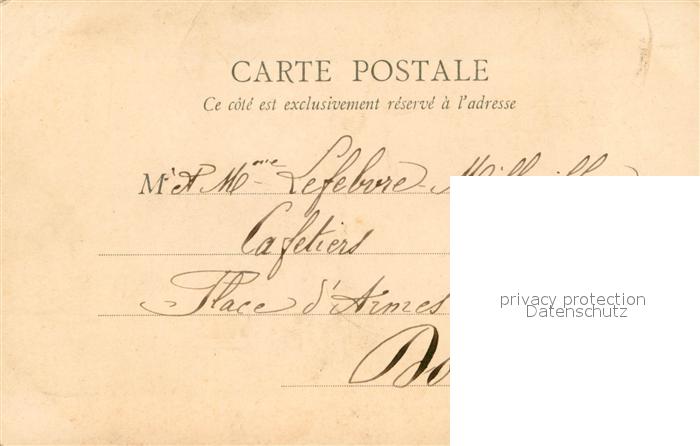 CARTE POSTALE
Ce côté est exclusivement réservé à l'adresse
Mr & Mme Lefebvre
Cafetiers
Place d'Armes
privacy protection
Datenschutz